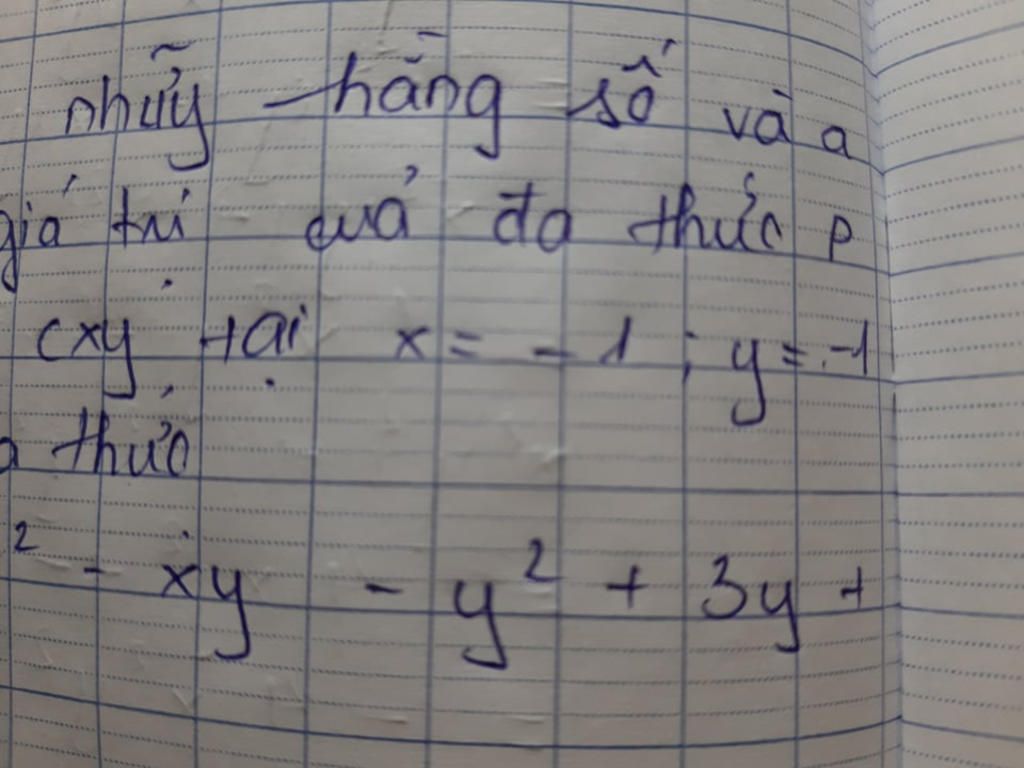 những hằng số và a
giá trị quả đa thức p
cxy tại x = -1 ; y = -1
thức
² - xy - y² + 3y +